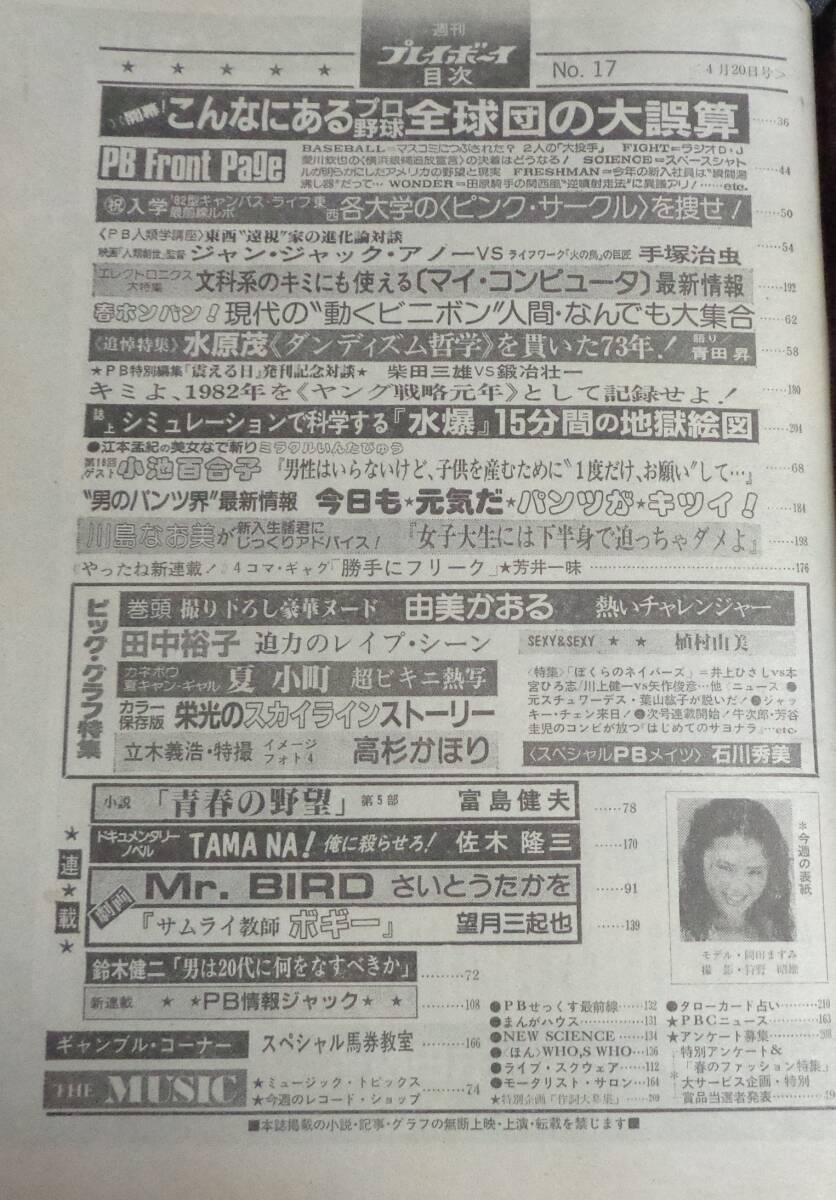 週刊
プレイボーイ
目次
No. 17
4月20日号>
開幕! こんなにあるプロ野球全球団の大誤算……36
PB Front Page
BASEBALL=マスコミにつぶされた? 2人の「大投手」 FIGHT=ラジオD・J
愛川欽也の〈横浜銀蝿追放宣言〉の決着はどうなる! SCIENCE=スペースシャト
ルが明らかにしたアメリカの野望と現実 FRESHMAN=今年の新入社員は“瞬間湯
沸し器”だって… WONDER=田原騎手の関西風“逆噴射走法”に異議アリ!……etc.
……44
祝入学 '82型キャンパス・ライフ東西最前線ルポ 各大学の〈ピンク・サークル〉を捜せ!……50
〈PB人類学講座〉東西“遠視”家の進化論対談
映画『人類創世』監督 ジャン・ジャック・アノーVS ライフワーク『火の鳥』の巨匠 手塚治虫……54
エレクトロニクス大特集 文科系のキミにも使える〔マイ・コンピュータ〕最新情報……192
春ホンバン! 現代の“動くビニボン”人間・なんでも大集合……62
〈追悼特集〉水原茂《ダンディズム哲学》を貫いた73年! 語り/青田昇……58
★PB特別編集「震える日」発刊記念対談★ 柴田三雄VS鍛冶壮一
キミよ、1982年を《ヤング戦略元年》として記録せよ!……180
誌上シミュレーションで科学する『水爆』15分間の地獄絵図……204
●江本孟紀の美女なで斬りミラクルいんたびゅう
第18回ゲスト 小池百合子『男性はいらないけど、子供を産むために“1度だけ、お願い”して…』……68
“男のパンツ界”最新情報 今日も★元気だ★パンツが★キツイ!……184
川島なお美が新入生諸君にじっくりアドバイス!『女子大生には下半身で迫っちゃダメよ』……198
《やったね新連載!》4コマ・ギャグ「勝手にフリーク」★芳井一味……176
ビッグ・グラフ特集
巻頭 撮り下ろし豪華ヌード 由美かおる 熱いチャレンジャー
田中裕子 迫力のレイプ・シーン
SEXY&SEXY ★ ★ 植村由美
カネボウ夏キャン・ギャル 夏 小町 超ビキニ熱写
カラー保存版 栄光のスカイラインストーリー
立木義浩・特撮 イメージフォト4 高杉かほり
〈特集〉「ぼくらのネイバーズ」=井上ひさしvs本
宮ひろ志/川上健一vs矢作俊彦…他〈ニュース〉●
元スチュワーデス・葉山紘子が説いだ!●ジャッ
キー・チェン来日!●次号連載開始!牛次郎・芳谷
圭児のコンビが放つ「はじめてのサヨナラ」…etc.
〈スペシャルPBメイツ〉石川秀美
★連★載★
小説 「青春の野望」第5部 富島健夫……78
ドキュメンタリーノベル TAMA NA! 俺に殺らせろ! 佐木隆三……170
劇画 Mr. BIRD さいとうたかを……91
『サムライ教師 ボギー』 望月三起也……139
鈴木健二「男は20代に何をなすべきか」………72
新連載 ★ ★PB情報ジャック★ ★………108
ギャンブル・コーナー スペシャル馬券教室……166
THE MUSIC
★ミュージック・トピックス
★今週のレコード・ショップ
……74
●PBせっくす最前線……132
●まんがハウス……131
●NEW SCIENCE……134
●〈ほん〉WHO,S WHO…136
●ライブ・スクウェア……112
●モータリスト・サロン…164
★特別企画「作詞大募集」……209
●タローカード占い……210
★PBCニュース……163
★アンケート募集……208
*特別アンケート&
「春のファッション特集」
大サービス企画・特別
賞品当選者発表……19
*今週の表紙
モデル・岡田ますみ
撮影・狩野
■本誌掲載の小説・記事・グラフの無断上映・上演・転載を禁じます■